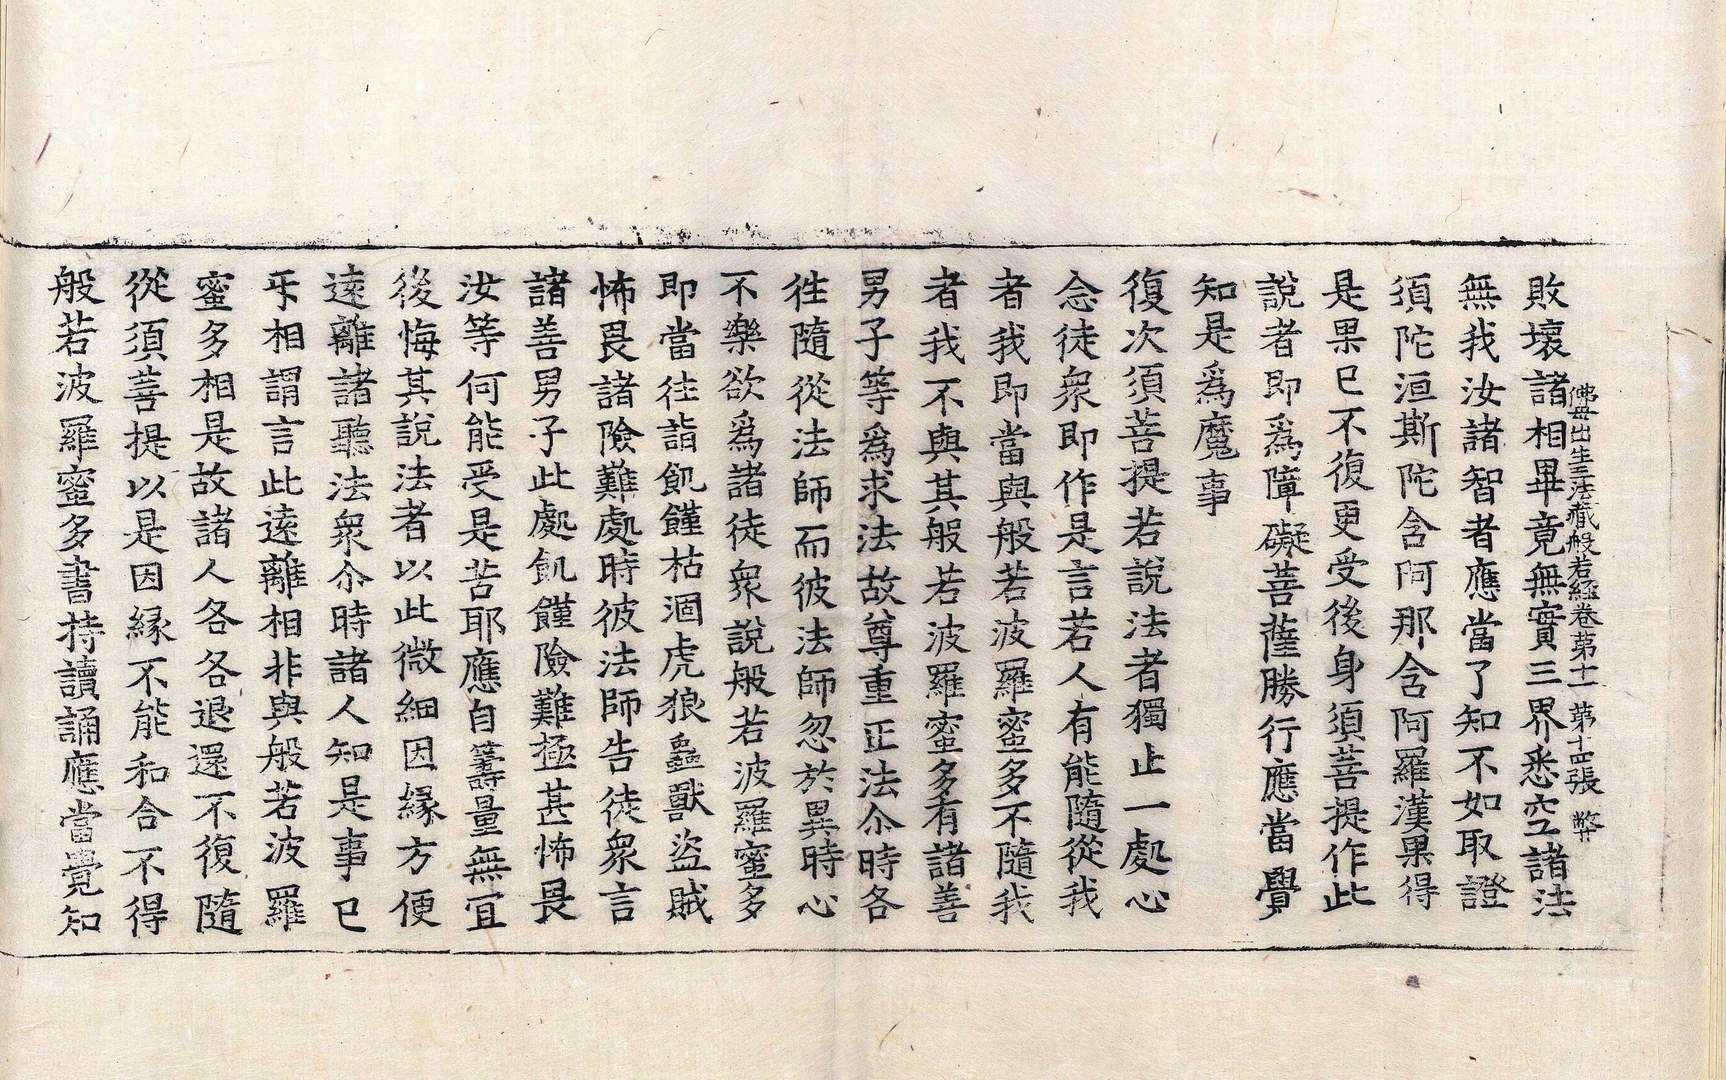 佛母出生三法藏般若經卷第十一 第十四張 弊
敗壞諸相畢竟無實三界悉空諸法
無我汝諸智者應當了知不如取證
須陀洹斯陀含阿那含阿羅漢果得
是果已不復更受後身須菩提作此
說者即爲障礙菩薩勝行應當覺
知是爲魔事
復次須菩提若說法者獨止一處心
念徒衆即作是言若人有能隨從我
者我即當與般若波羅蜜多不隨我
者我不與其般若波羅蜜多有諸善
男子等爲求法故尊重正法尒時各
徃隨從法師而彼法師忽於異時心
不樂欲爲諸徒衆說般若波羅蜜多
即當徃詣飢饉枯涸虎狼蟲獸盜賊
怖畏諸險難處時彼法師告徒衆言
諸善男子此處飢饉險難極甚怖畏
汝等何能受是苦耶應自籌量無宜
後悔其說法者以此微細因緣方便
遠離諸聽法衆尒時諸人知是事已
㸦相謂言此遠離相非與般若波羅
蜜多相是故諸人各各退還不復隨
從須菩提以是因緣不能和合不得
般若波羅蜜多書持讀誦應當覺知